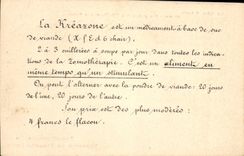 La Kréazone est un médicament à base de suc
de viande (X
2 à 3 cuillerées à soupe par jour dans toutes les indica-
tions de la Zomothérapie. C'est un aliment en
même temps qu'un stimulant.
On peut l'alterner avec la poudre de viande: 20 jours
de l'une, 20 jours de l'autre.
Son prix est des plus modérés:
4 francs le flacon.